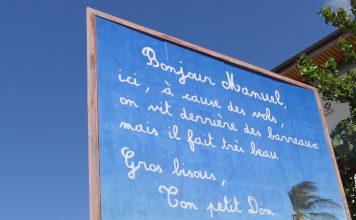 Bonjour Manuel,
ici, à cause des vols,
on vit derrière des barreaux
mais il fait très beau
Gros bisous,
Ton petit Dom